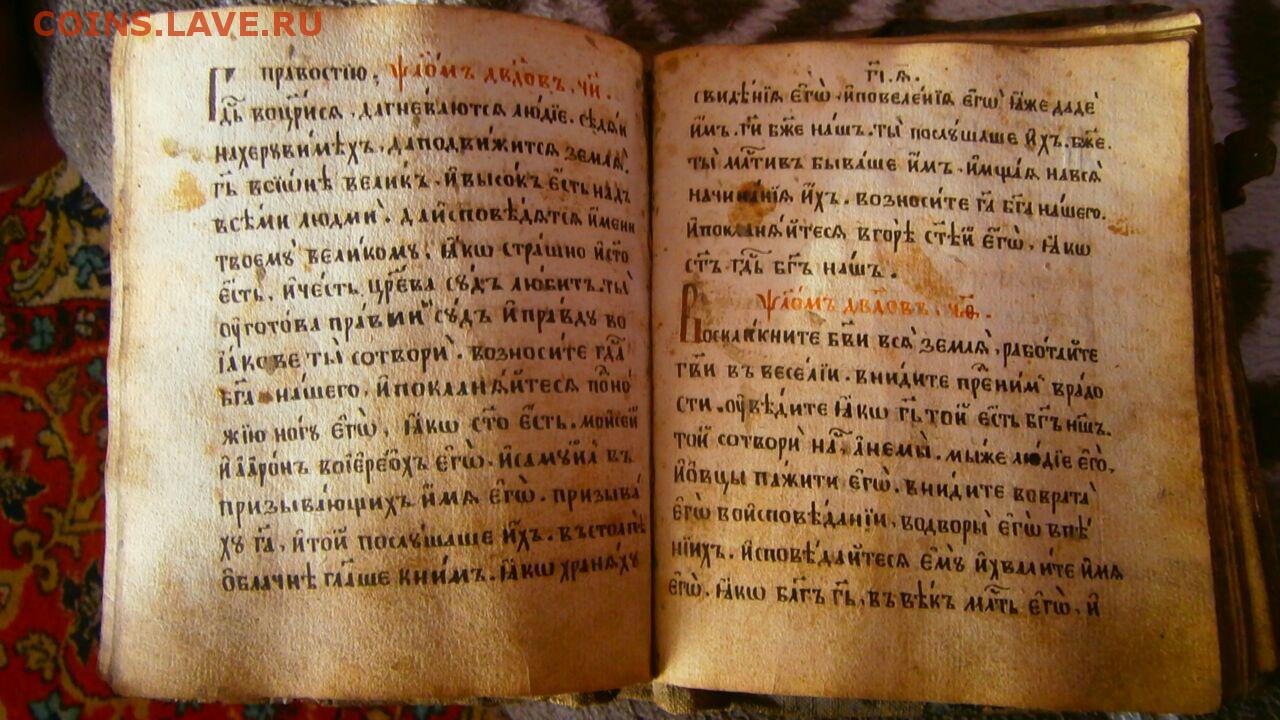 COINS.LAVE.RU
правостїю. ѱало́мъ дв҃довъ. чи҃.
Гд҃ь воцр҃ися. дагнѣваются лю́дїе. сѣдѧ́и
нахерꙋви́мѣхъ. даподви́житсѧ землѧ̀.
гд҃ь всїѡ́нѣ вели́къ. и҆высо́къ є҆́сть надъ
всѣ́ми людмѝ. даи҆сповѣ́дѧтсѧ и҆́мени
твоемꙋ̀ вели́комꙋ. ꙗ҆́кѡ стра́шно и҆ст҃о
є҆́сть. и҆че́сть цр҃е́ва сꙋ́дъ лю́битъ. ты̀
оу҆гото́ва пра́вини сꙋ́дъ и҆пра́вдꙋ во
і҆а́кове ты̀ сотворѝ. возноси́те гд҃а
бг҃а на́шего. и҆покланѧ́йтесѧ поⷣно́
жїю но́гꙋ є҆гѡ̀. ꙗ҆́кѡ ст҃о є҆́сть. мѡи҆се́й
и҆а҆арѡ́нъ воі҆ере́охъ є҆гѡ̀. и҆самꙋи́лъ въ
призыва́ющихъ и҆́мѧ є҆гѡ̀. призыва́
хꙋ гд҃а. и҆то́й послꙋ́шаше и҆́хъ. въсто́лпѣ
ѻ҆́блачнѣ гл҃аше кни́мъ. ꙗ҆́кѡ хранѧ́хꙋ
свидѣ́нїѧ є҆гѡ̀. и҆повелѣ́нїѧ є҆гѡ̀ ꙗ҆́же дадѐ
и҆́мъ. гд҃и бж҃е на́шъ. ты̀ послꙋ́шаше и҆́хъ. бж҃е.
ты̀ млⷭ҇тивъ быва́ше и҆́мъ. и҆мща́ѧ навсѧ̀
начина́нїѧ и҆́хъ. возноси́те гд҃а бг҃а на́шего.
и҆покланѧ́йтесѧ вгорѣ̀ ст҃ѣ́й є҆гѡ̀. ꙗ҆́кѡ
ст҃ъ гд҃ь бг҃ъ на́шъ.
ѱало́мъ дв҃довъ. ч҃ѳ.
Воскли́кните бг҃ви всѧ̀ землѧ̀, рабо́тайте
гд҃ви въвесе́лїи. вни́дите преⷣни́мъ вра́до
сти. оу҆вѣ́дите ꙗ҆́кѡ гд҃ь то́й є҆́сть бг҃ъ нш҃ъ.
то́й сотворѝ на́съ а҆немы̀. мы́же лю́дїе є҆гѡ̀,
и҆ѻ҆́вцы па́жити є҆гѡ̀. вни́дите воврата̀
є҆гѡ̀ воисповѣ́данїи, водворы̀ є҆гѡ̀ впѣ́
нїихъ. и҆сповѣ́дайтесѧ є҆мꙋ̀ и҆хвали́те и҆́мѧ
є҆гѡ̀. ꙗ҆́кѡ бл҃гъ гд҃ь, въвѣ́къ млⷭ҇ть є҆гѡ̀, и҆